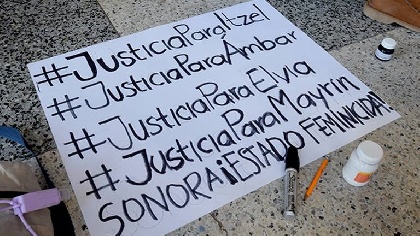 #JusticiaParaItzel
#JusticiaParaAmbar
#JusticiaParaElvia
#JusticiaParaMayrin
SONORA ¡ESTADO FEMINICIDA!